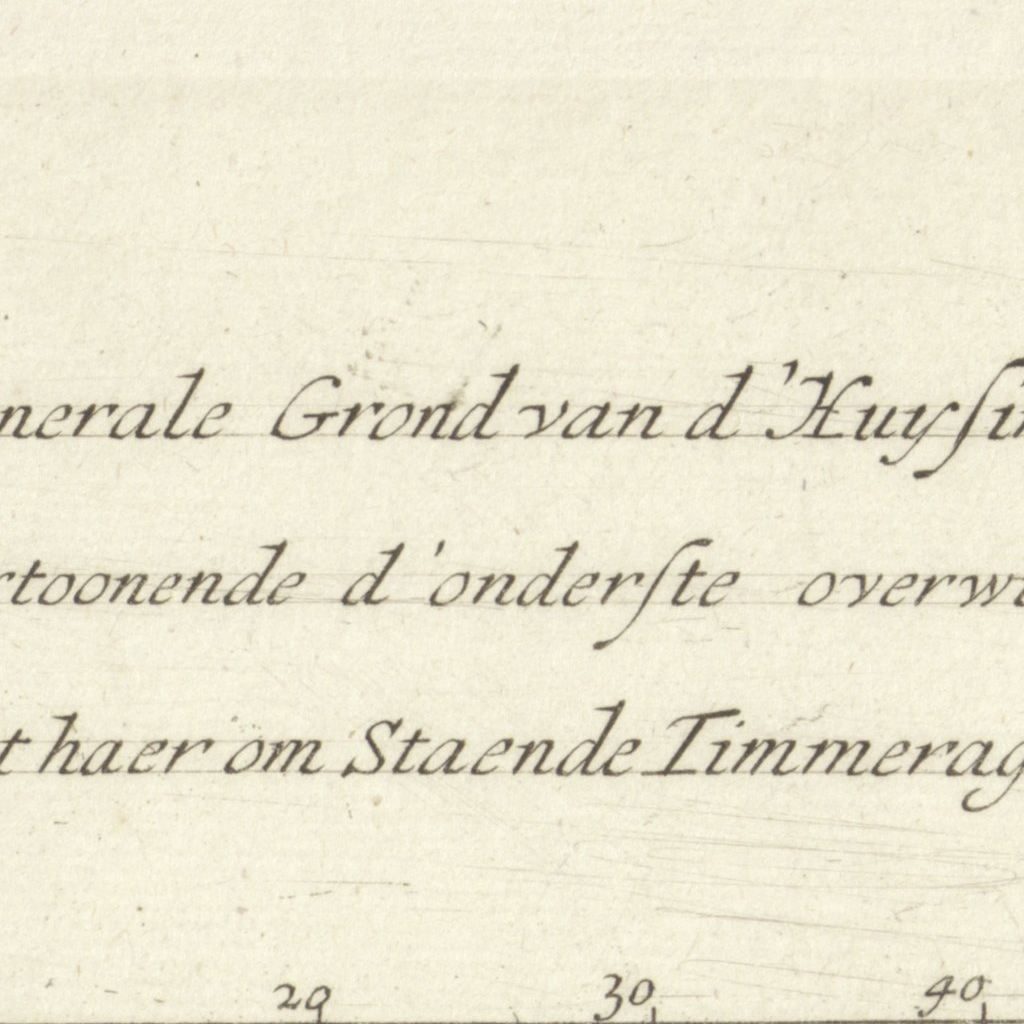 nerale Grond van d'Huyſin
rtoonende d'onderſte overwu
t haer om Staende Timmerag
20 30 40